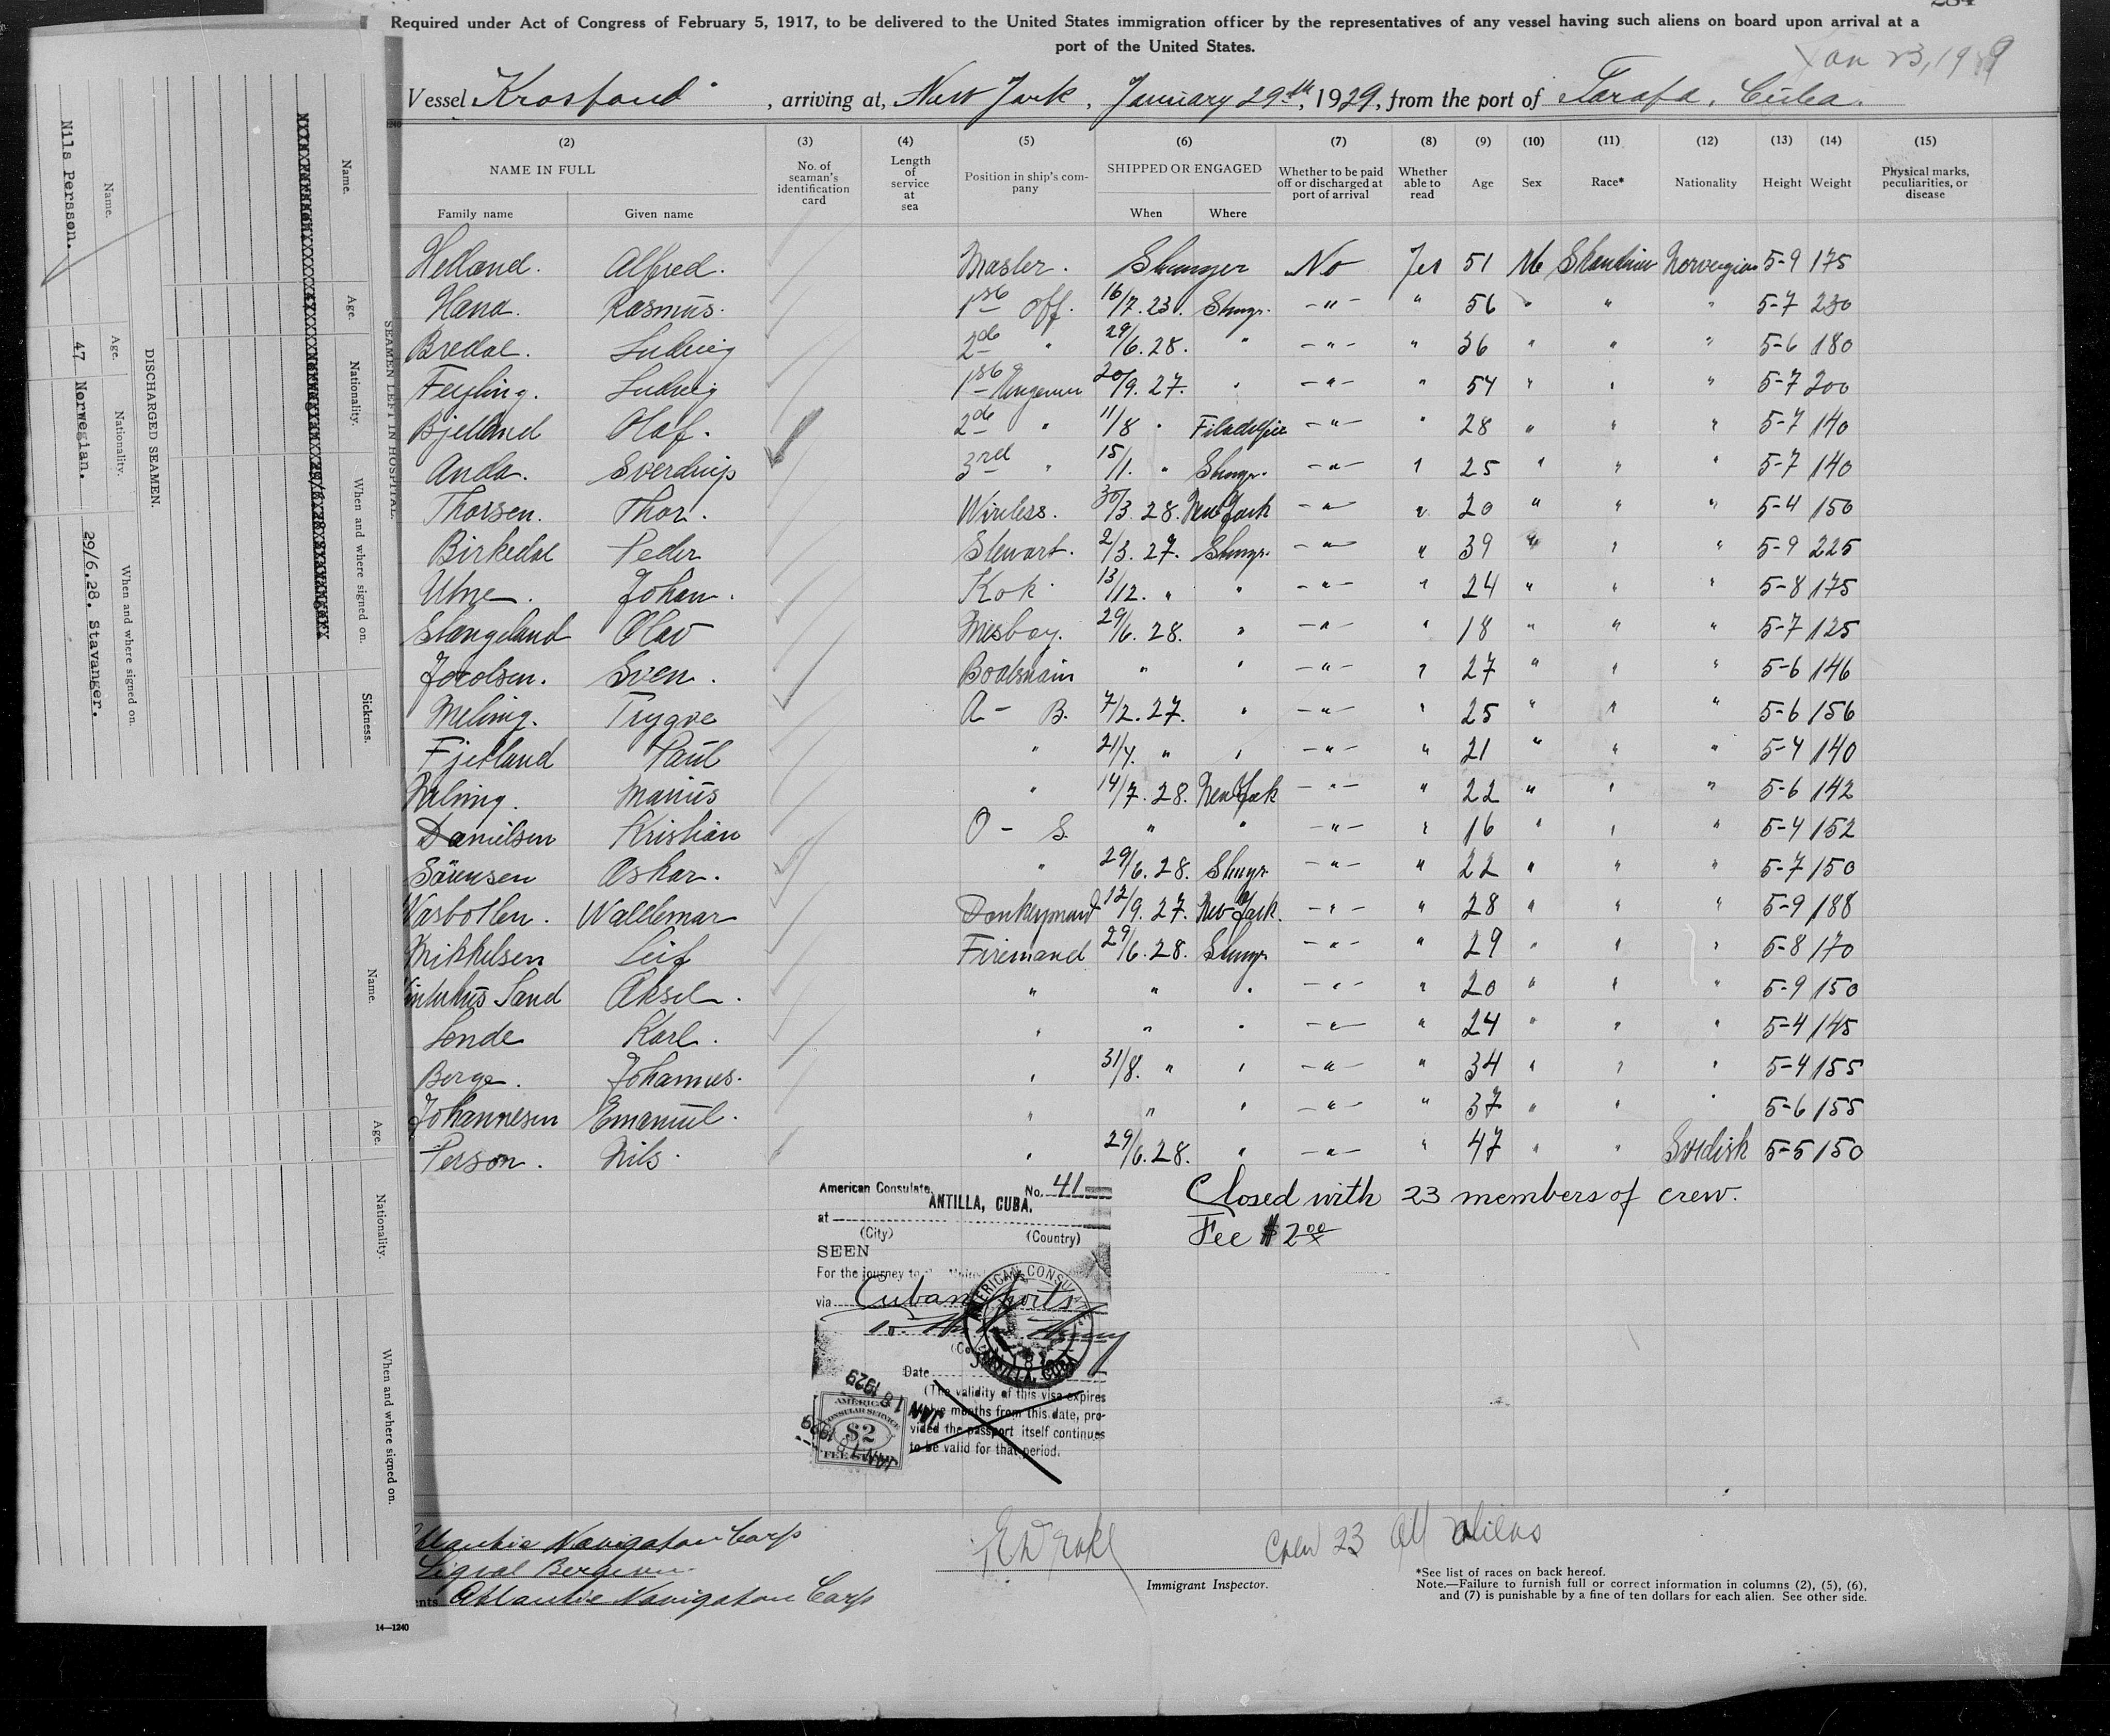 Required under Act of Congress of February 5, 1917, to be delivered to the United States immigration officer by the representatives of any vessel having such aliens on board upon arrival at a
port of the United States.
Jan 23, 1929
Vessel Krosfond, arriving at, New York, January 29th, 1929, from the port of Tarafa, Cuba.
(2) (3) (4) (5) (6) (7) (8) (9) (10) (11) (12) (13) (14) (15)
NAME IN FULL No. of seaman's identification card Length of service at sea Position in ship's company SHIPPED OR ENGAGED Whether to be paid off or discharged at port of arrival Whether able to read Age Sex Race* Nationality Height Weight Physical marks, peculiarities, or disease
Family name Given name When Where
Helland. Alfred. Master. Stvanger No Yes 51 M Skandinav Norwegian 5-9 175
Hana. Rasmus. 1st Off. 16/7.23. Stvngr. -"- " 56 " " " 5-7 230
Bredal. Ludvig 2de " 29/6.28. " -"- " 36 " " " 5-6 180
Feyling. Ludvig 1st Engeneer 20/9.27. " -"- " 54 " " " 5-7 200
Bjelland Olaf. 2de " 11/8 " Filadelfia -"- " 28 " " " 5-7 140
Anda. Sverdrup 3rd " 15/11. " Stvngr. -"- " 25 " " " 5-7 140
Thorsen. Thor. Wireless. 30/3.28. New York -"- " 20 " " " 5-4 150
Birkedal Peder Stewart. 2/3.27. Stvngr. -"- " 39 " " " 5-9 225
Utne. Johan. Kok 13/12. " " -"- " 24 " " " 5-8 175
Stangeland Olav Mesboy. 29/6.28. " -"- " 18 " " " 5-7 125
Jocolsen. Sven. Boatsmain " " -"- " 27 " " " 5-6 146
Meling. Trygve A- B. 7/2.27. " -"- " 25 " " " 5-6 156
Fjetland Paul " 21/7. " " -"- " 21 " " " 5-4 140
Meling. Marius " 14/7.28. New York -"- " 22 " " " 5-6 142
Danielsen Kristian O- S. " " -"- " 16 " " " 5-4 152
Sörensen Oskar. " 29/6.28. Stvngr. -"- " 22 " " " 5-7 150
Vasbotten. Waldemar Donkeymand 12/9.27. New York. -"- " 28 " " " 5-9 188
Mikkelsen Leif Firemand 29/6.28. Stvngr -"- " 29 " " " 5-8 170
Sand Aksel. " " " -"- " 20 " " " 5-9 150
Sonde Karl. " " " -"- " 24 " " " 5-4 145
Berge. Johannes. " 31/8. " " -"- " 34 " " " 5-4 155
Johannesen Emanuel. " " " -"- " 37 " " " 5-6 155
Person. Nils. " 29/6.28. " -"- " 47 " " Svedish 5-5 150
Closed with 23 members of crew.
Fee $2.00
American Consulate, No. 41
at ANTILLA, CUBA.
(City) (Country)
SEEN
For the journey to
via Cuban ports
AMERICAN CONSULATE
ANTILLA, CUBA
Date
JAN 18 1929
(The validity of this visa expires
twelve months from this date, provided the passport itself continues
to be valid for that period.
AMERICAN
CONSULAR SERVICE
$2
FEE STAMP
JAN 18 1929
Atlantic Navigation Corp
Sigval Bergesen
Atlantic Navigation Corp
Crew 23 All aliens
Immigrant Inspector.
*See list of races on back hereof.
Note.—Failure to furnish full or correct information in columns (2), (5), (6),
and (7) is punishable by a fine of ten dollars for each alien. See other side.
14—1240
SEAMEN LEFT IN HOSPITAL.
Name. Age. Nationality. When and where signed on. Sickness.
DISCHARGED SEAMEN.
Name. Age. Nationality. When and where signed on.
Nils Persson. 47 Norwegian. 29/6.28. Stavanger.
Name. Age. Nationality. When and where signed on.